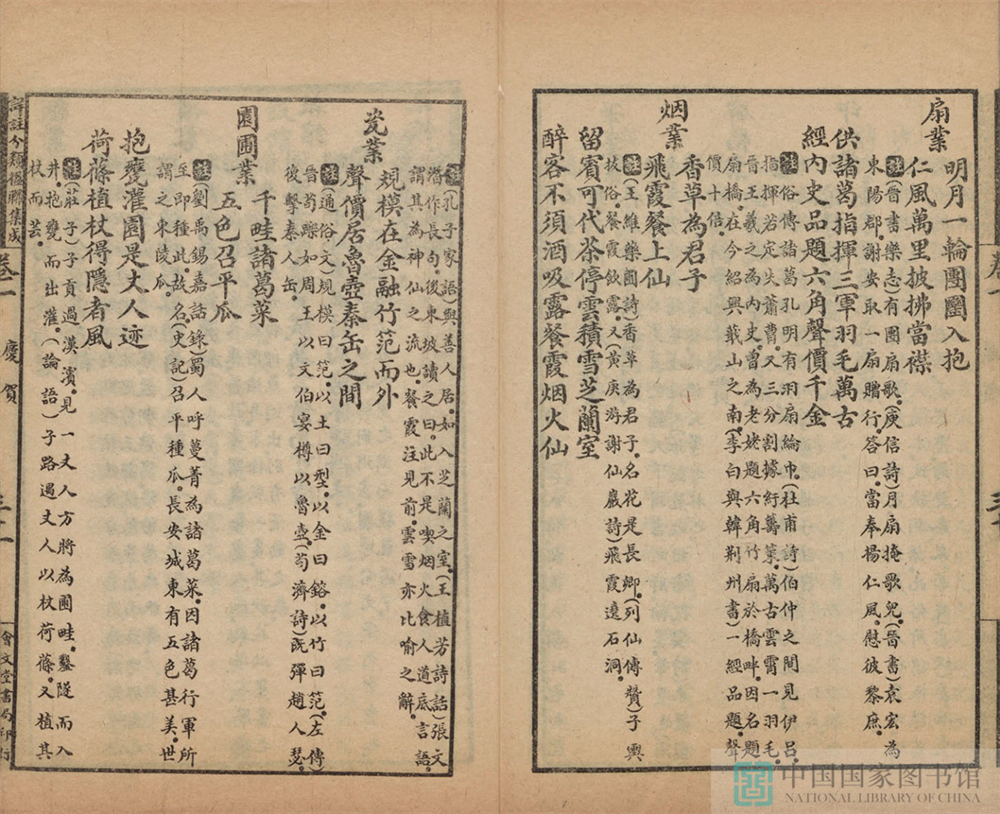 扇業
明月一輪團圞入抱
仁風萬里披拂當襟
註(晉書樂志)有團扇歌(庾信詩)月扇掩歌兒(晉書)袁宏為
東陽郡謝安取一扇贈行答曰當奉揚仁風慰彼黎庶
供諸葛指揮三軍羽毛萬古
經內史品題六角聲價千金
註俗傳諸葛孔明有羽扇綸巾(杜甫詩)伯仲之間見伊呂
指揮若定失蕭曹又三分割據紆籌策萬古雲霄一羽毛
晉王羲之為內史曾為老姥題六角竹扇於橋畔因名題
扇橋在今紹興蕺山之南(李白與韓荊州書)一經品題聲
價十倍
烟業
香草為君子
飛霞餐上仙
註(王維樂圃詩)香草為君子名花是長卿(列仙傳贊)子輿
拔俗餐霞飲露又(黃庚游謝仙巖詩)飛霞遶石洞
留賓可代茶停雲積雪芝蘭室
醉客不須酒吸露餐霞烟火仙
註(孔子家語)與善人居如入芝蘭之室(王植芳詩話)張文
潛作長句後東坡讀之曰此不是喫烟火食人道底言語
謂其為神仙之流也餐霞注見前雲雪亦比喻之辭
瓷業
規模在金融竹笵而外
聲價居魯壺秦缶之間
註(通俗文)規模曰笵以土曰型以金曰鎔以竹曰笵(左傳)
晉荀躒如周王以文伯宴樽以魯壺(荀濟詩)既彈趙人瑟
復擊秦人缶
園圃業
千畦諸葛菜
五色召平瓜
註(劉禹錫嘉話錄)蜀人呼蔓菁為諸葛菜因諸葛行軍所
至即種此故名(史記)召平種瓜長安城東有五色甚美世
謂之東陵瓜
抱甕灌園是丈人迹
荷蓧植杖得隱者風
註(莊子)子貢過漢濱見一丈人方將為圃畦鑿隧而入
井抱甕而出灌(論語)子路遇丈人以杖荷蓧又植其
杖而芸
詳註分類楹聯集成
卷一
慶賀
三十一
會文堂書局印行
中国国家图书馆
NATIONAL LIBRARY OF CHINA